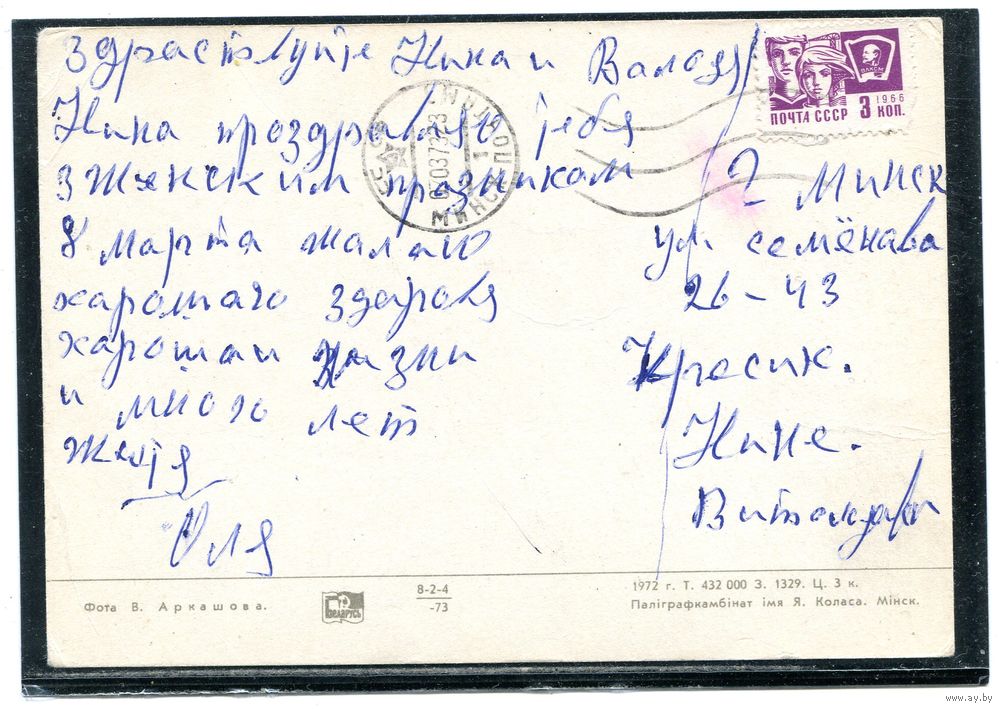 здраствуйте Нина и Валодя
Нина проздравляю тебя
з женским празникам
8 марта жалаю
харошаго здаровя
харошаи жизни
и много лет
жетя
Оля
ПОЧТА СССР 3 КОП.
1966
ВЛКСМ
МИНСК
г Минск
ул семёнава
26-43
Красик.
Нине.
Фота В. Аркашова.
БЕЛАРУСЬ
8-2-4
-73
1972 г. Т. 432 000 З. 1329. Ц. 3 к.
Паліграфкамбінат імя Я. Коласа. Мінск.
www.ay.by